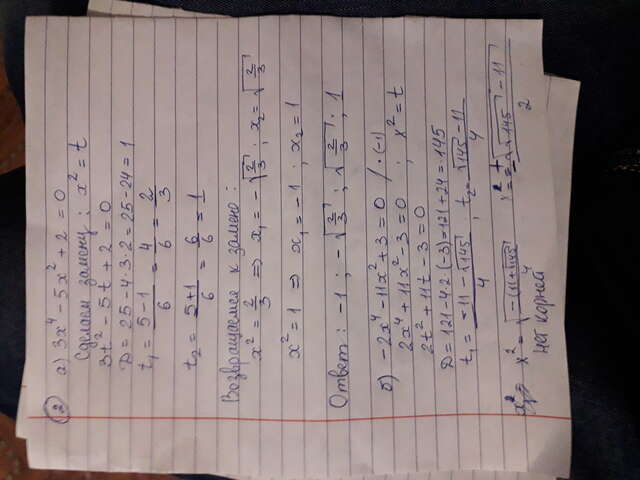 2 а) 3x⁴ - 5x² + 2 = 0
Сделаем замену: x² = t
3t² - 5t + 2 = 0
D = 25 - 4·3·2 = 25 - 24 = 1
t₁ = (5-1)/6 = 4/6 = 2/3
t₂ = (5+1)/6 = 6/6 = 1
Возвращаемся к замено:
x² = 2/3 ⇒ x₁ = -√(2/3); x₂ = √(2/3)
x² = 1 ⇒ x₁ = -1; x₂ = 1
Ответ: -1; -√(2/3); √(2/3); 1
б) -2x⁴ - 11x² + 3 = 0 /·(-1)
2x⁴ + 11x² - 3 = 0 ; x² = t
2t² + 11t - 3 = 0
D = 121 - 4·2·(-3) = 121 + 24 = 145
t₁ = (-11 - √145)/4 ; t₂ = (√145 - 11)/4
x² = √(-(11+√145)/4) x = ±√(√145 - 11)/2
Нет корней